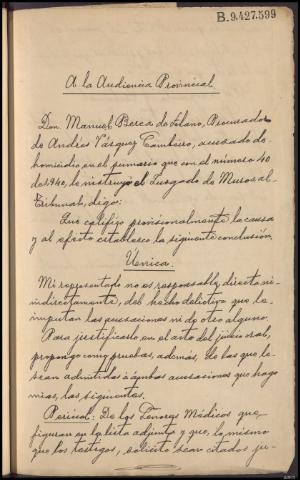 B.9.427.599
A la Audiencia Provincial
Don Manuel Berea de Solano, Procurador
de Andrés Vázquez Tambeiro, acusado de
homicidio, en el sumario que con el número 40
de 1.940, le instruyó el Juzgado de Muros al
Tribunal, digo:
Que califico provisionalmente la causa
y al efecto establezco la siguiente conclusión.
Unica.
Mi representado no es responsable, directa ni
indirectamente, del hecho delictivo que le
imputan las acusaciones ni de otro alguno.
Para justificarlo, en el acto del juicio oral,
propongo como pruebas, además de las que le
sean admitidas á ambas acusaciones que hago
mías, las siguientes.
Pericial: De los Señores Médicos que
figuran en la lista adjunta y que, lo mismo
que los testigos, solicito sean citados ju-